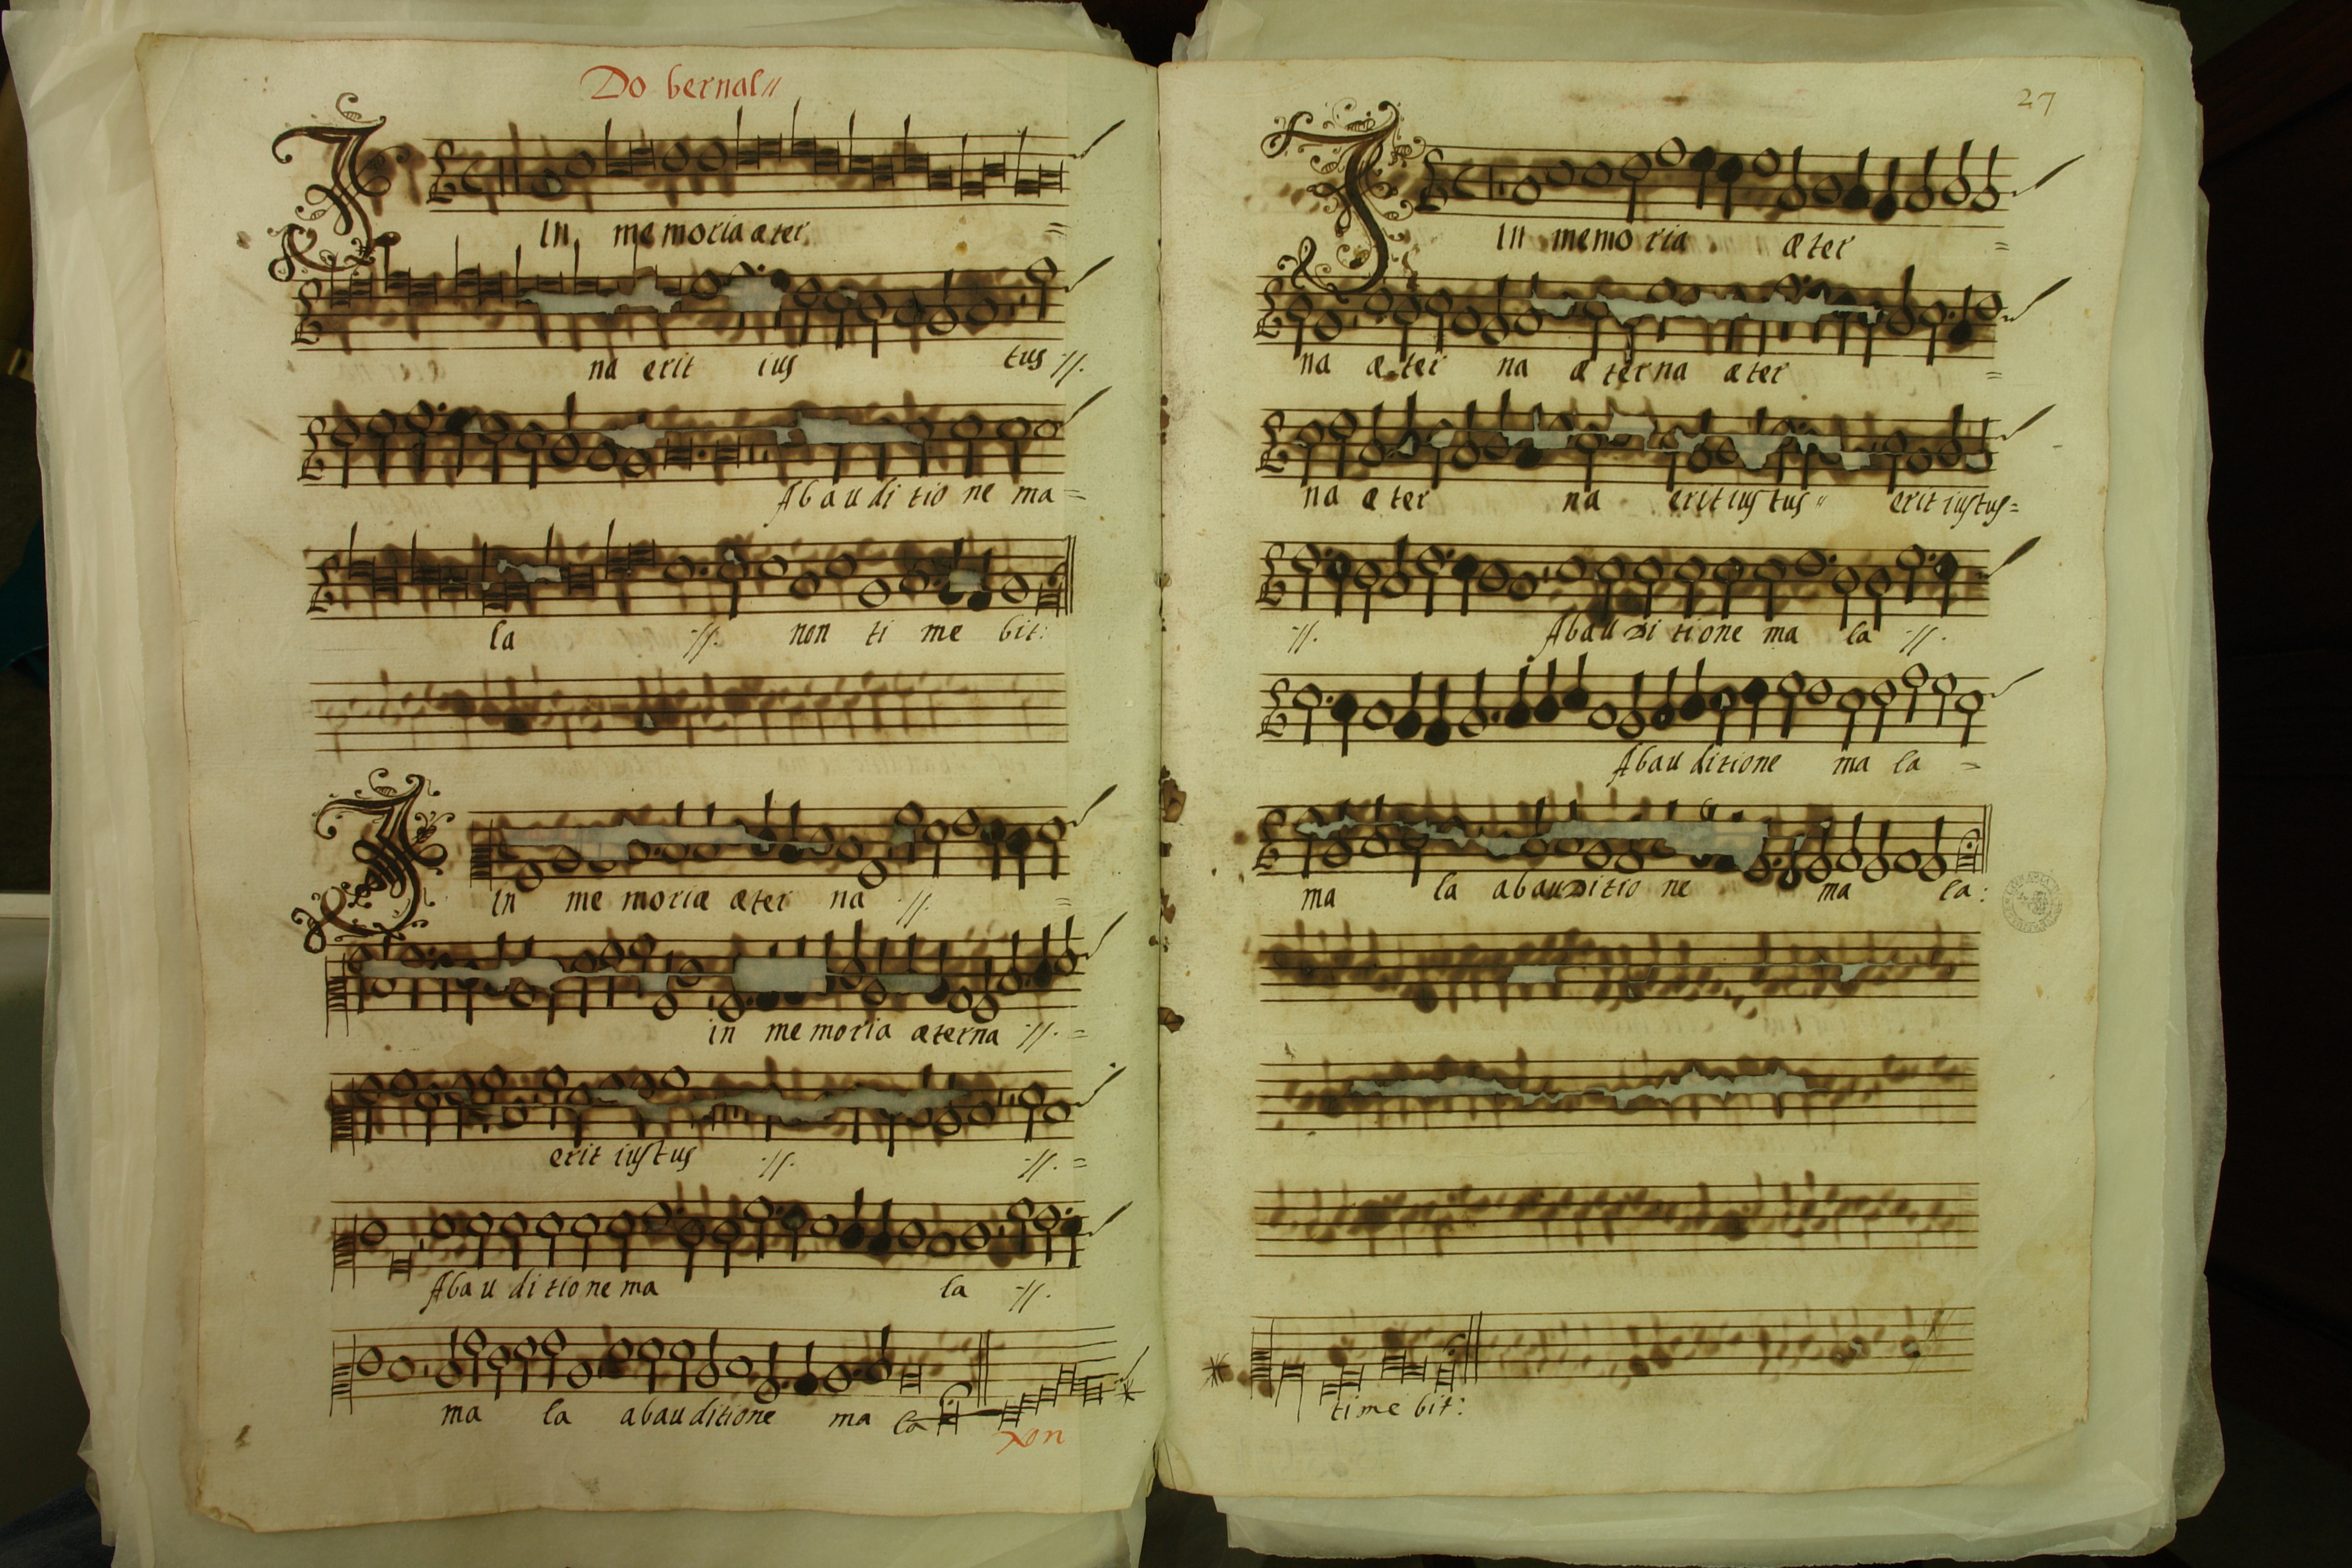 Do bernal//
In memoria æter =
na erit ius tus ://.
Abauditione ma =
la ://. non ti me bit:
In me moria æter na ://. =
in memoria æterna ://. =
erit iustus ://. ://. =
Abauditione ma la ://.
ma la abauditione ma la
Non
27
In memoria æter =
na æter na æterna æter =
na æter na erit iustus " erit iustus =
://. Abauditione ma la ://.
Abauditione ma la =
ma la abauditione ma la:
timebit: